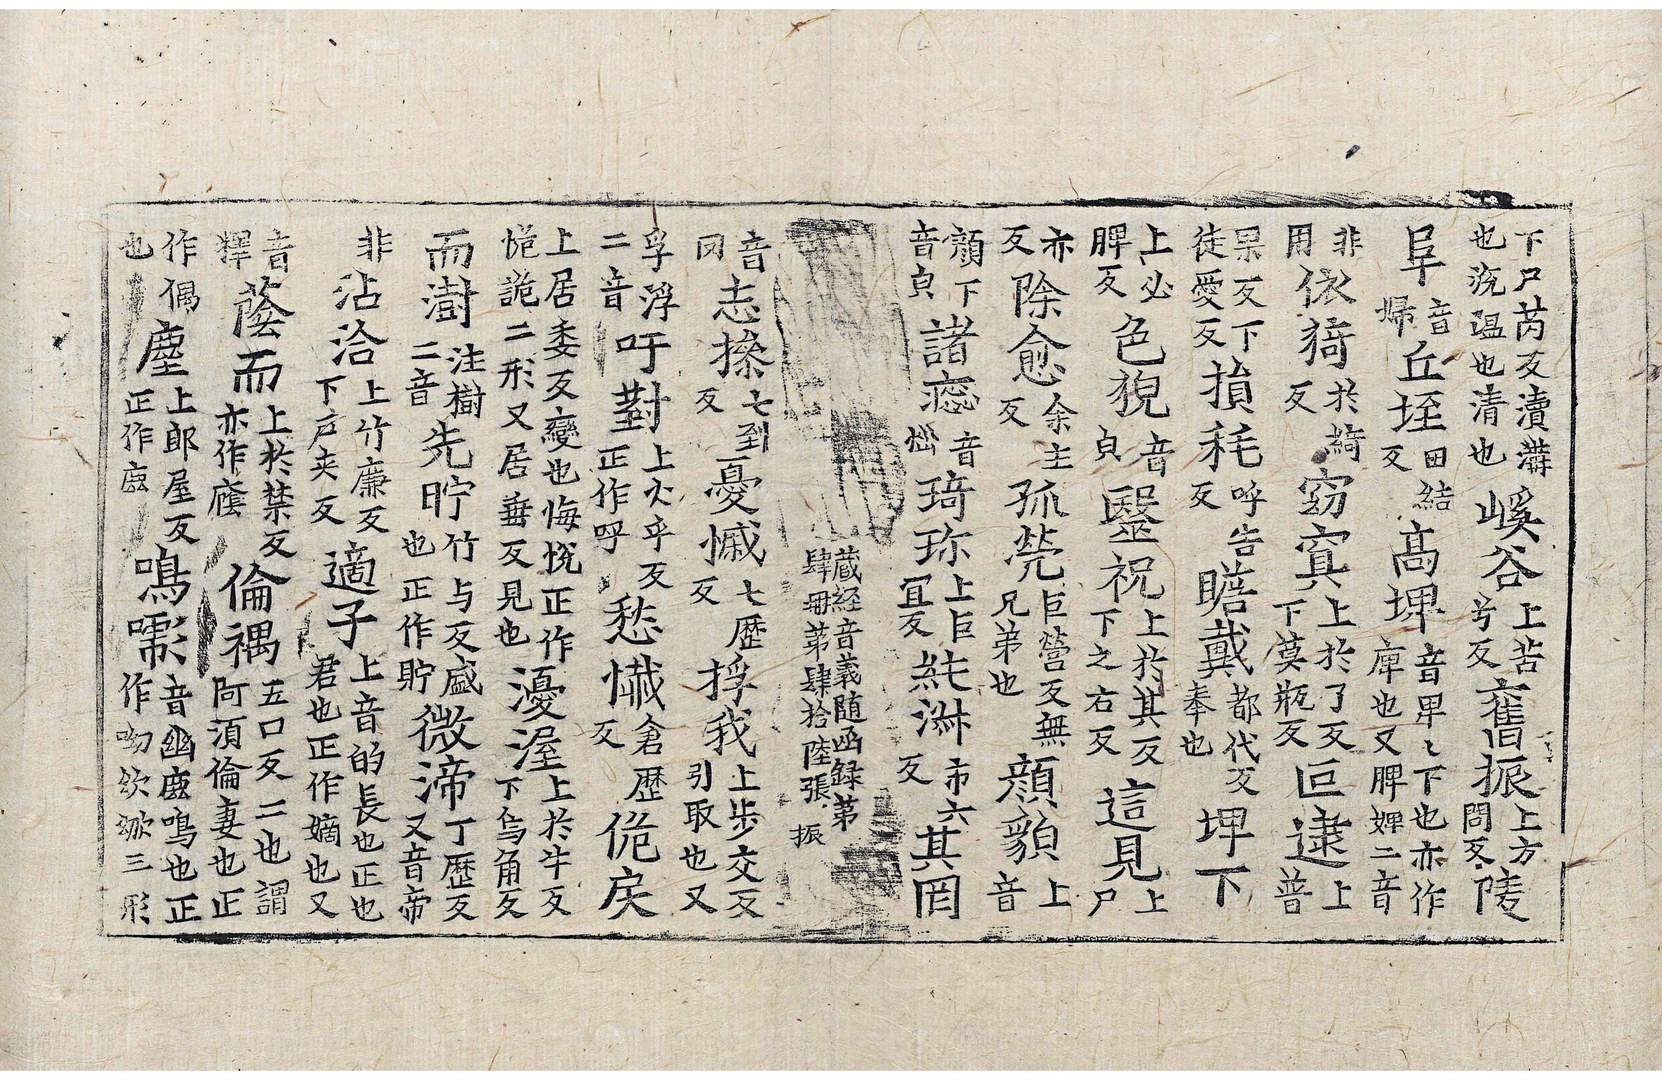 下尸芮反瀆溝也疏温也清也嵠谷上苦兮反奮振上方問反陵
阜音婦丘垤田結反髙埤音卑〻下也亦作庳也又脾婢二音
非用依猗於綺反窈㝠上於了反下莫瓶反叵逮上普
果反下徒愛反損秏呼告反瞻戴都代反奉也埤下
上必脾反色猊音貞毉祝上於其反下之右反這見上尸
亦反除愈余主反孤煢巨營反無兄弟也顔䫉上音
顏下音貞諸蕊音㷎琦珎上巨宜反純淋市六反其罔
藏経音義随函録第肆冊第肆拾陸張 振
音罔志操七到反憂慽七歴反捊我上步交反引取也又
孚浮二音吁對上火乎反正作呼愁懴倉歴反佹戾
上居委反變也悔恱正作恑詭二形又居垂反見也瀀渥上於牛反下烏角反
而澍注樹二音先貯竹与反盛也正作貯微渧丁歴反又音帝
非沾洽上竹廉反下戸夾反適子上音的長也正也君也正作嫡也又
音釋蔭而上於禁反亦作䕃倫禑五口反二也謂阿湏倫妻也正
作偶也塵上郎屋反正作鹿鳴㘈音幽鹿鳴也正作呦欻㰶三形